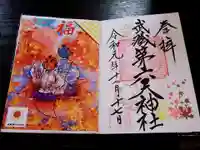 奉拝
武蔵第六天神社
令和元年十一月十七日
福